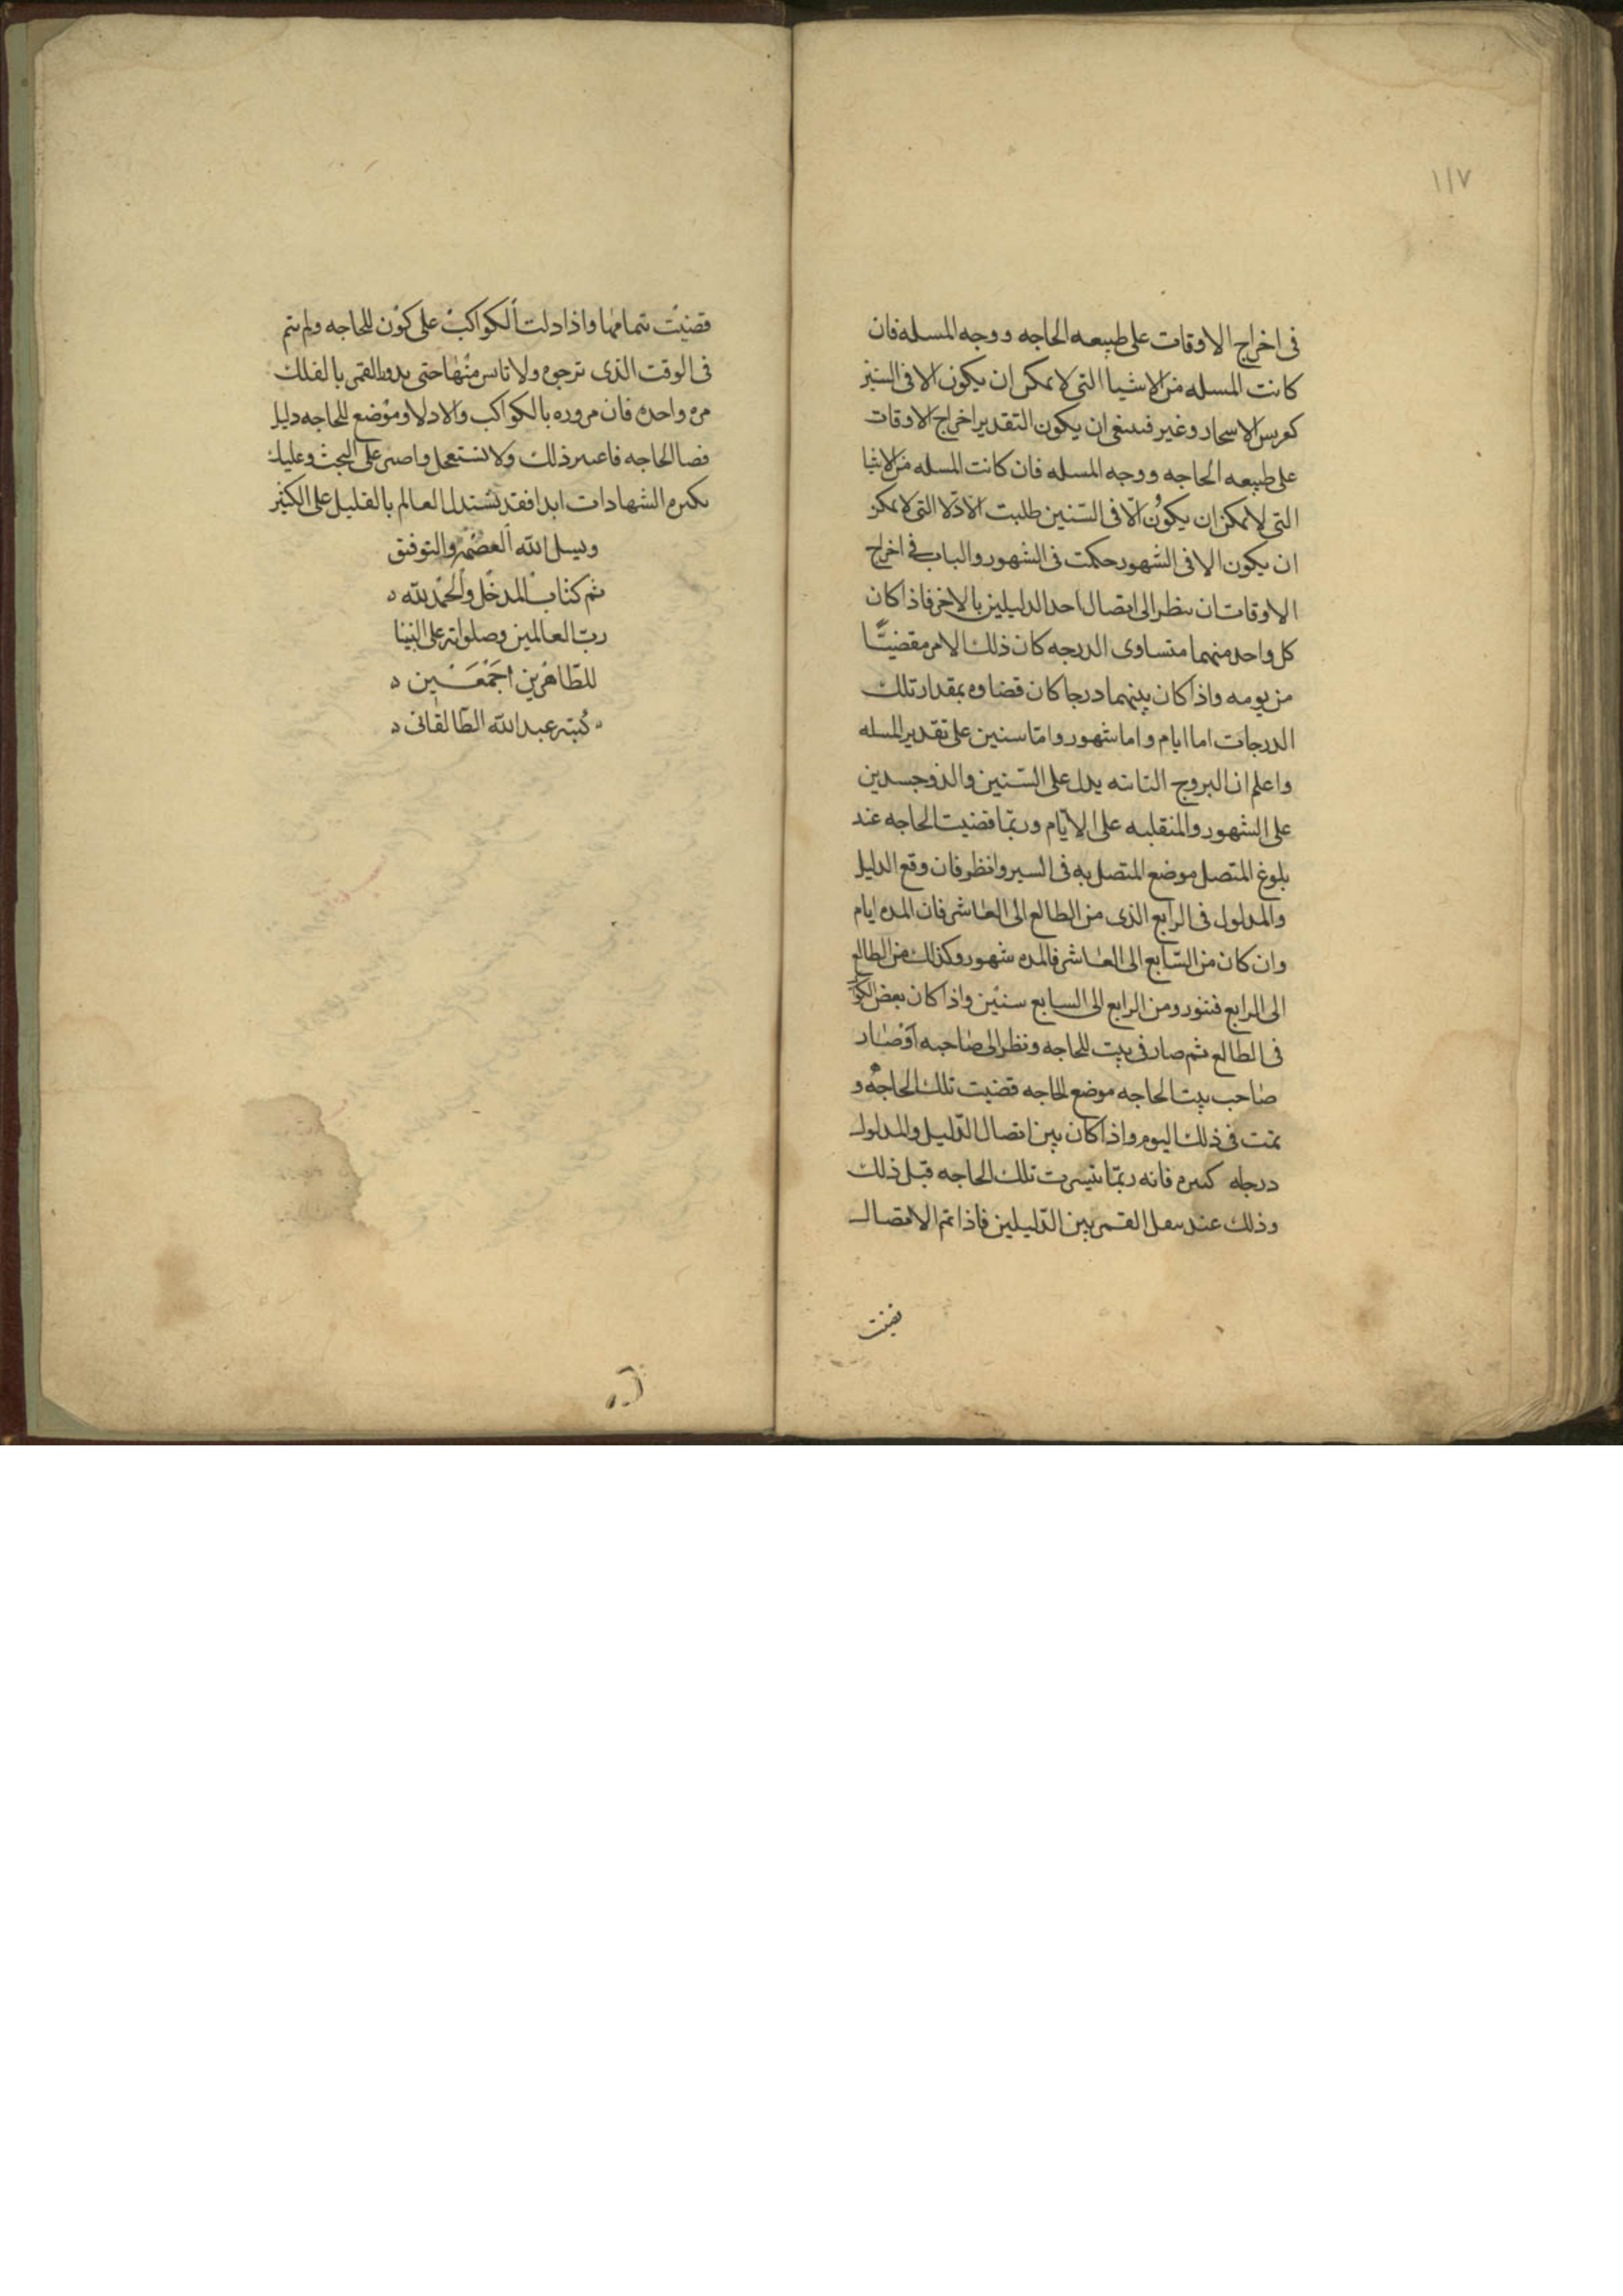 ١١٧
فى اخراج الاوقات على طبيعه الحاجه ووجه المسله فان
كانت المسله من الاشيا التى لا يمكن ان يكون الا فى السنين
كغرس الاسجار وغير فينبغى ان يكون التقدير اخراج الاوقات
على طبيعه الحاجه ووجه المسله فان كانت المسله من الاشيا
التى لا يمكن ان يكون الّا فى السّنين طلبت الادّلا التى لا يمكن
ان يكون الا فى الشهور حكمت فى الشهور والباب فى اخراج
الاوقات ان ينظر الى اتصال احد الدليلين بالاخر فاذا كان
كل واحد منهما متساوى الدرجه كان ذلك الامر مقضيّا
من يومه واذا كان بينهما درجا كان قضاوه بمقدار تلك
الدرجات اما ايام واما شهور وامّا سنين على تقدير المسله
واعلم ان البروج الثابته يدل على السّنين والذوجسدين
على الشهور والمنقلبه على الايّام وربّما قضيت الحاجه عند
بلوغ المتصل موضع المتصل به فى السير وانظر فان وقع الدليل
والمدلول فى الرابع الذى من الطالع الى العاشر فان المده ايام
وان كان من السّابع الى العاشر فالمده شهور وكذلك من الطالع
الى الرابع فشهور ومن الرابع الى السابع سنين واذا كان بعض الكواكب
فى الطالع ثم صار فى بيت الحاجه ونظر الى صاحبه او صار
صاحب بيت الحاجه موضع الحاجه قضيت تلك الحاجه و
تمت فى ذلك اليوم واذا كان بين اتصال الدّليل والمدلول
درجاه كسره فانه ربّما تيسرت تلك الحاجه قبل ذلك
وذلك عند نقل القمر بين الدّليلين فاذا تم الاتصال
قضيت
قضيت تمامها واذا دلت الكواكب على كون الحاجه ولم تتم
فى الوقت الذى ترجوه ولا تاس منها حتى يدور القمر بالفلك
مره واحده فان مروره بالكواكب والادلا وموضع الحاجه دليل
قضا الحاجه فاعتبر ذلك ولا تستعجل واصبر على البحث وعليك
بكثره الشهادات ابدا فقد يستدل العالم بالقليل على الكثير
ونسل الله العصمة والتوفيق
تم كتاب المدخل والحمد لله
ربّ العالمين وصلواته على النبينا
للطّاهرين اجمعين
كتبه عبد الله الطالقانى